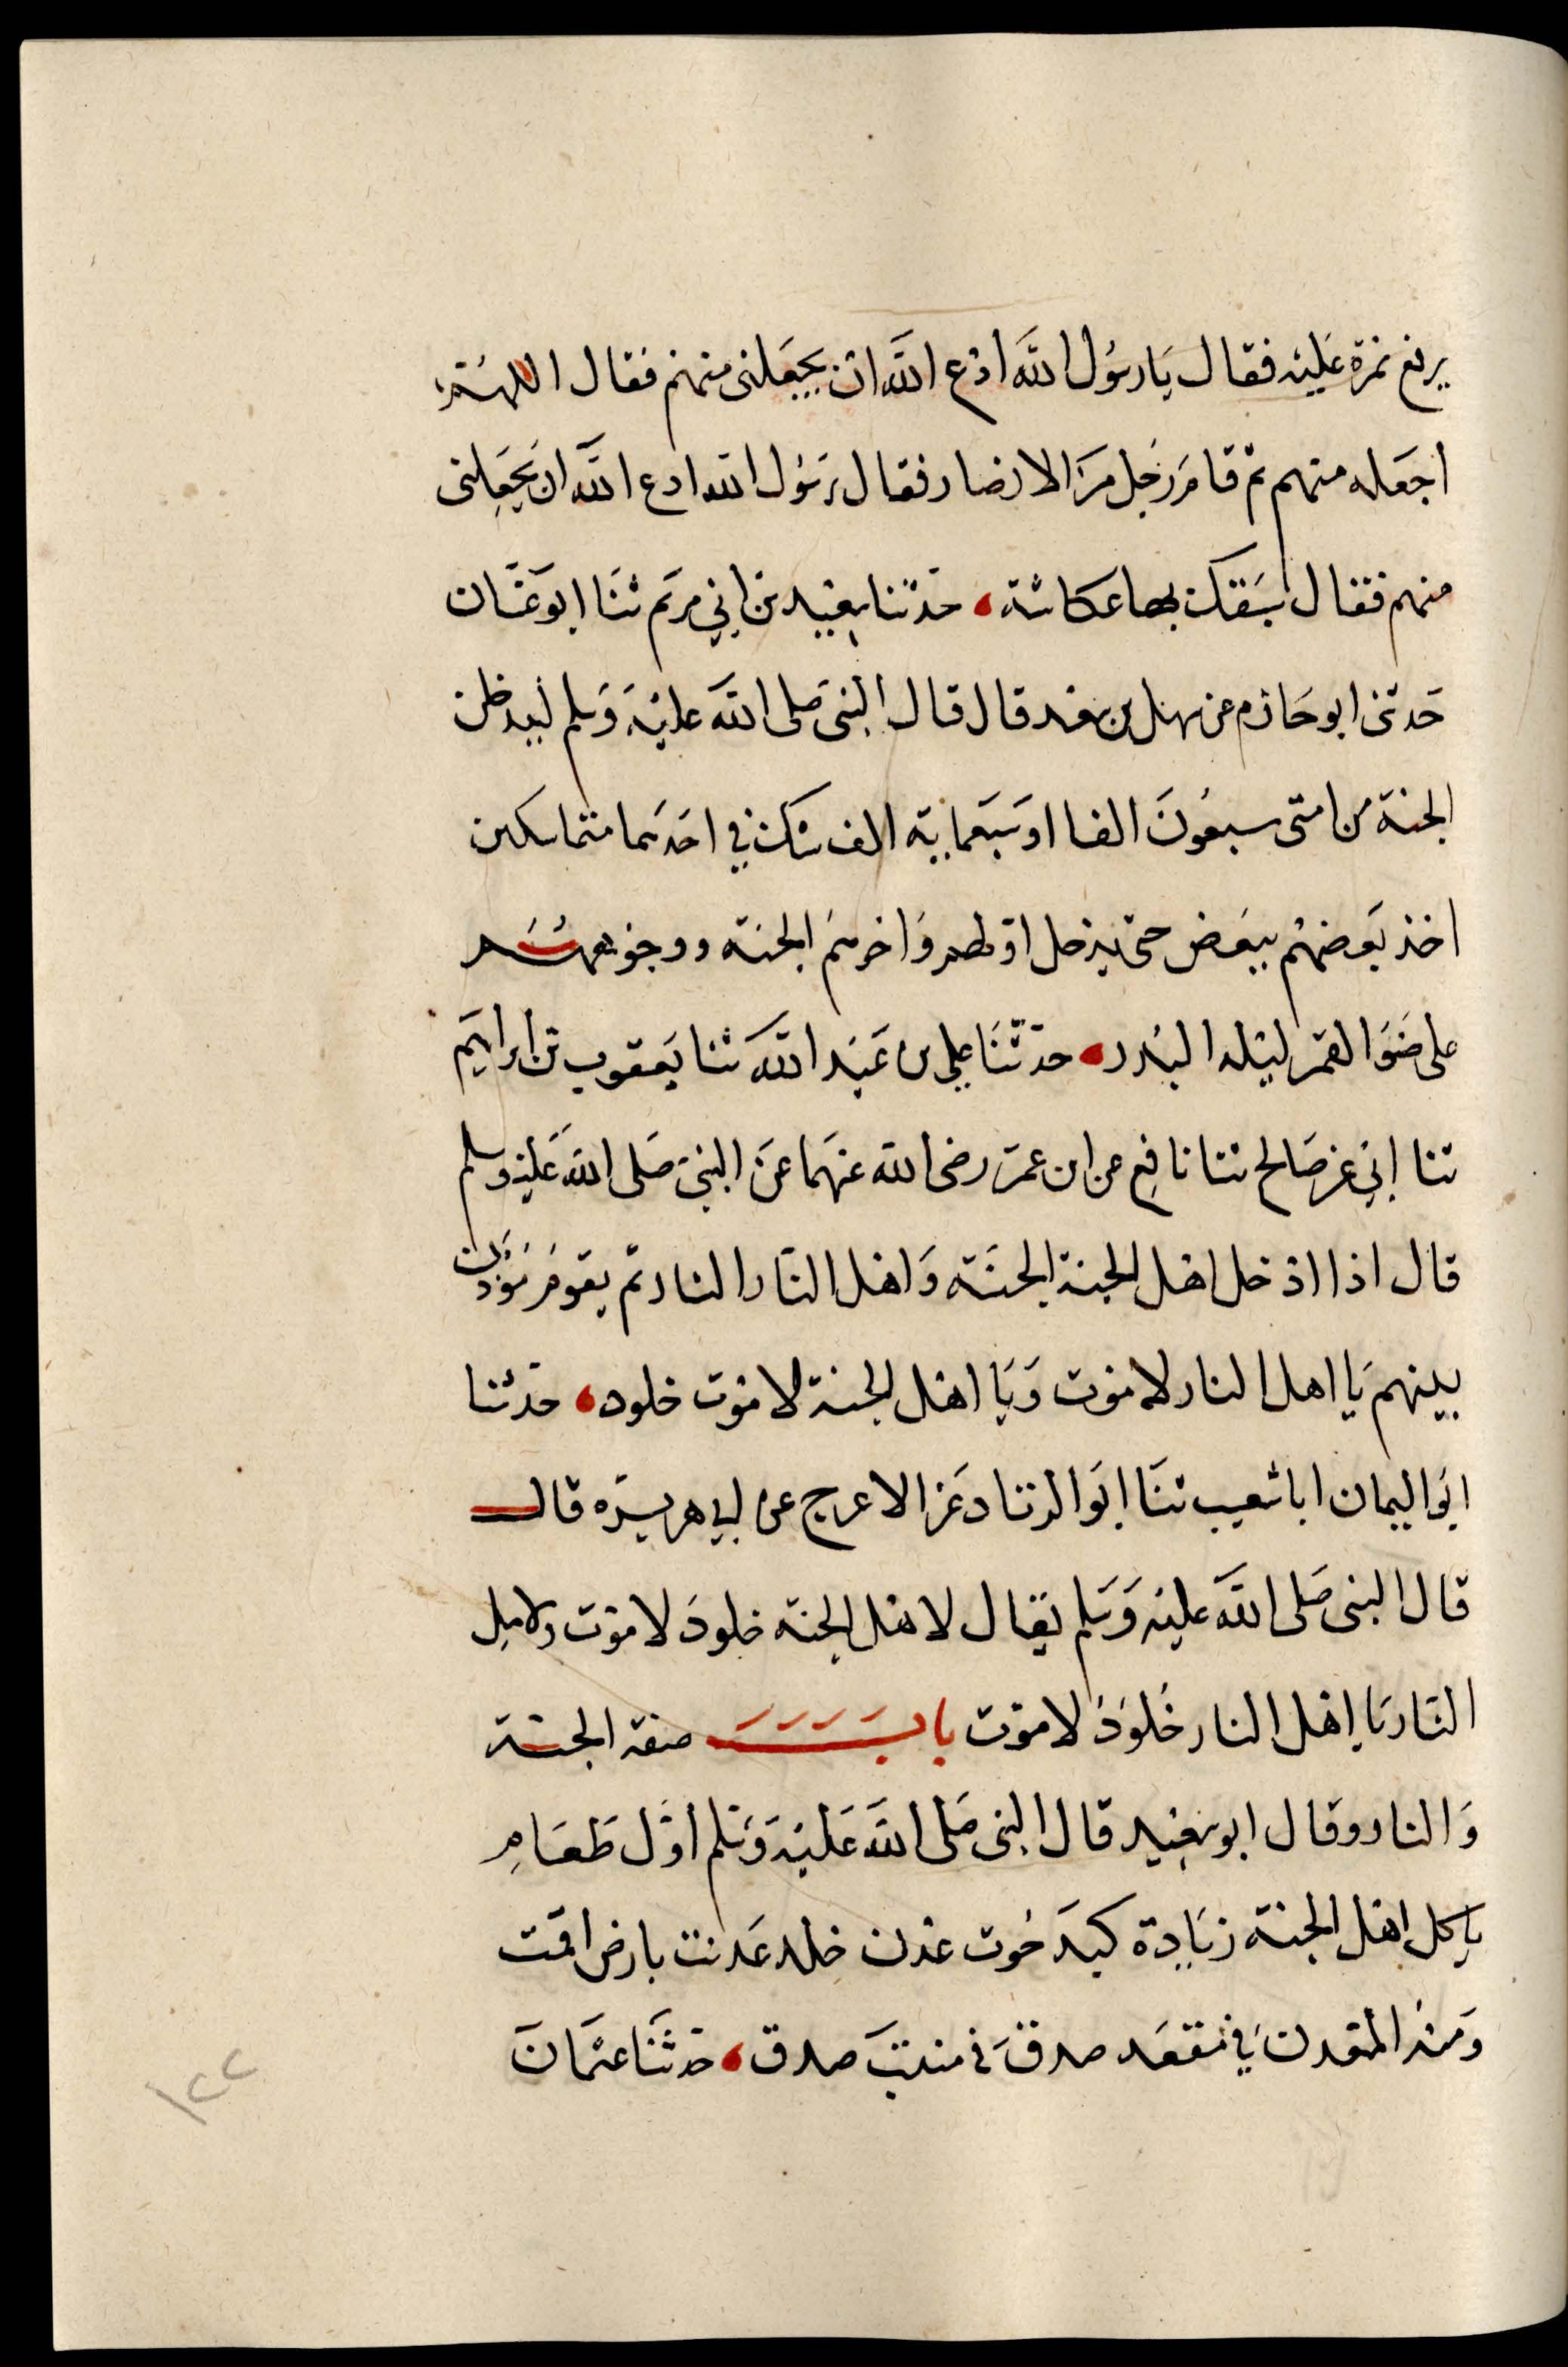 يرفع نمرة عليه فقال يا رسول الله ادع الله ان يجعلنى منهم فقال اللهم
اجعله منهم ثم قام رجل من الانصار فقال يرسول الله ادع الله ان يجعلنى
منهم فقال سبقك بها عكاشة، حدثنا سعيد بن ابي مريم ثنا ابو غسان
حدثنى ابو حازم عن سهل بن سعد قال قال النبى صلى الله عليه وسلم ليدخلن
الجنة من امتى سبعون الفا او سبعماية الف شك في احدهما متماسكين
اخذ بعضهم ببعض حتى يدخل اولهم واخرهم الجنة ووجوههم
على ضو القمر ليلة البدر، حدثنا علي بن عبد الله ثنا يعقوب بن ابراهيم
ثنا ابي عن صالح ثنا نافع عن ابن عمر رضى الله عنهما عن النبى صلى الله عليه وسلم
قال اذا ادخل اهل الجنة الجنة واهل النار النار ثم يقوم مؤذن
بينهم يا اهل النار لا موت ويا اهل الجنة لا موت خلود، حدثنا
ابو اليمان ابا شعيب ثنا ابو الزناد عن الاعرج عن ابي هريره قال
قال النبى صلى الله عليه وسلم يقال لاهل الجنة خلود لا موت ولاهل
النار يا اهل النار خلود لا موت باب صفة الجنة
والنار وقال ابو سعيد قال النبى صلى الله عليه وسلم اول طعام
ياكل اهل الجنة زيادة كبد حوت عدن خلد عدنت بارض اقمت
ومنه المعدن في مقعد صدق في منبت صدق، حدثنا عثمان
١٢٢